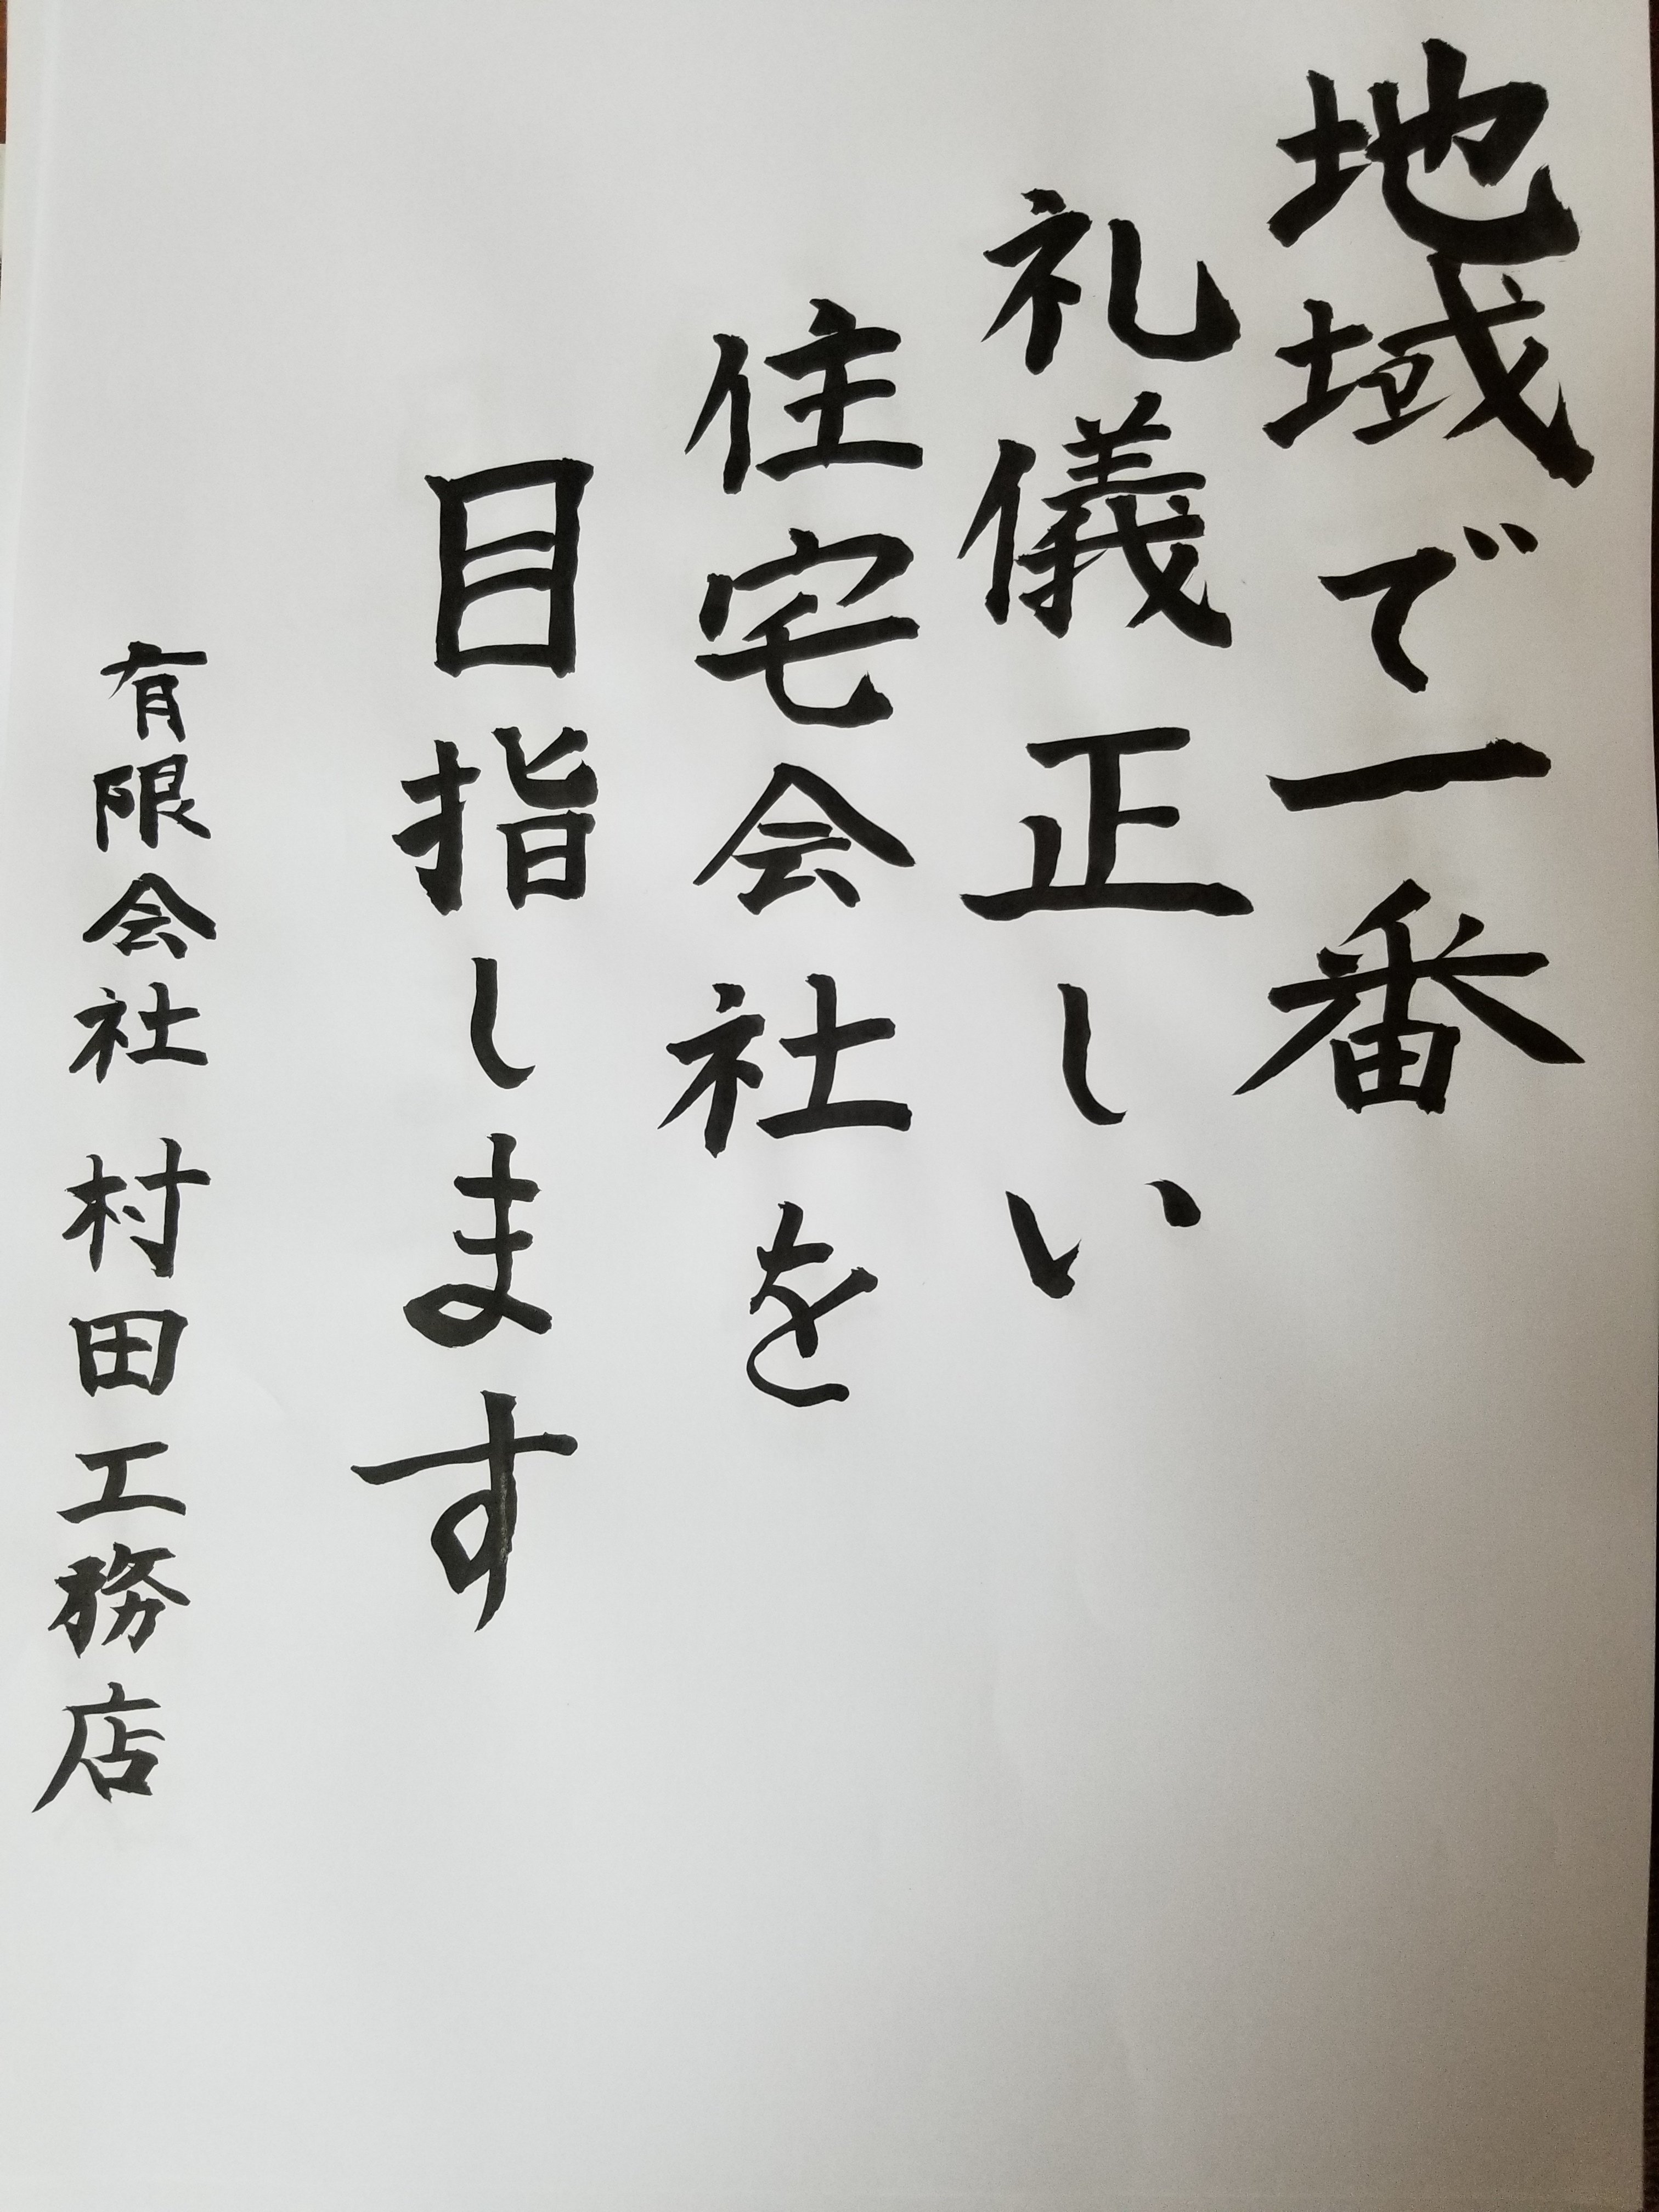 地域で一番
礼儀正しい
住宅会社を
目指します
有限会社 村田工務店